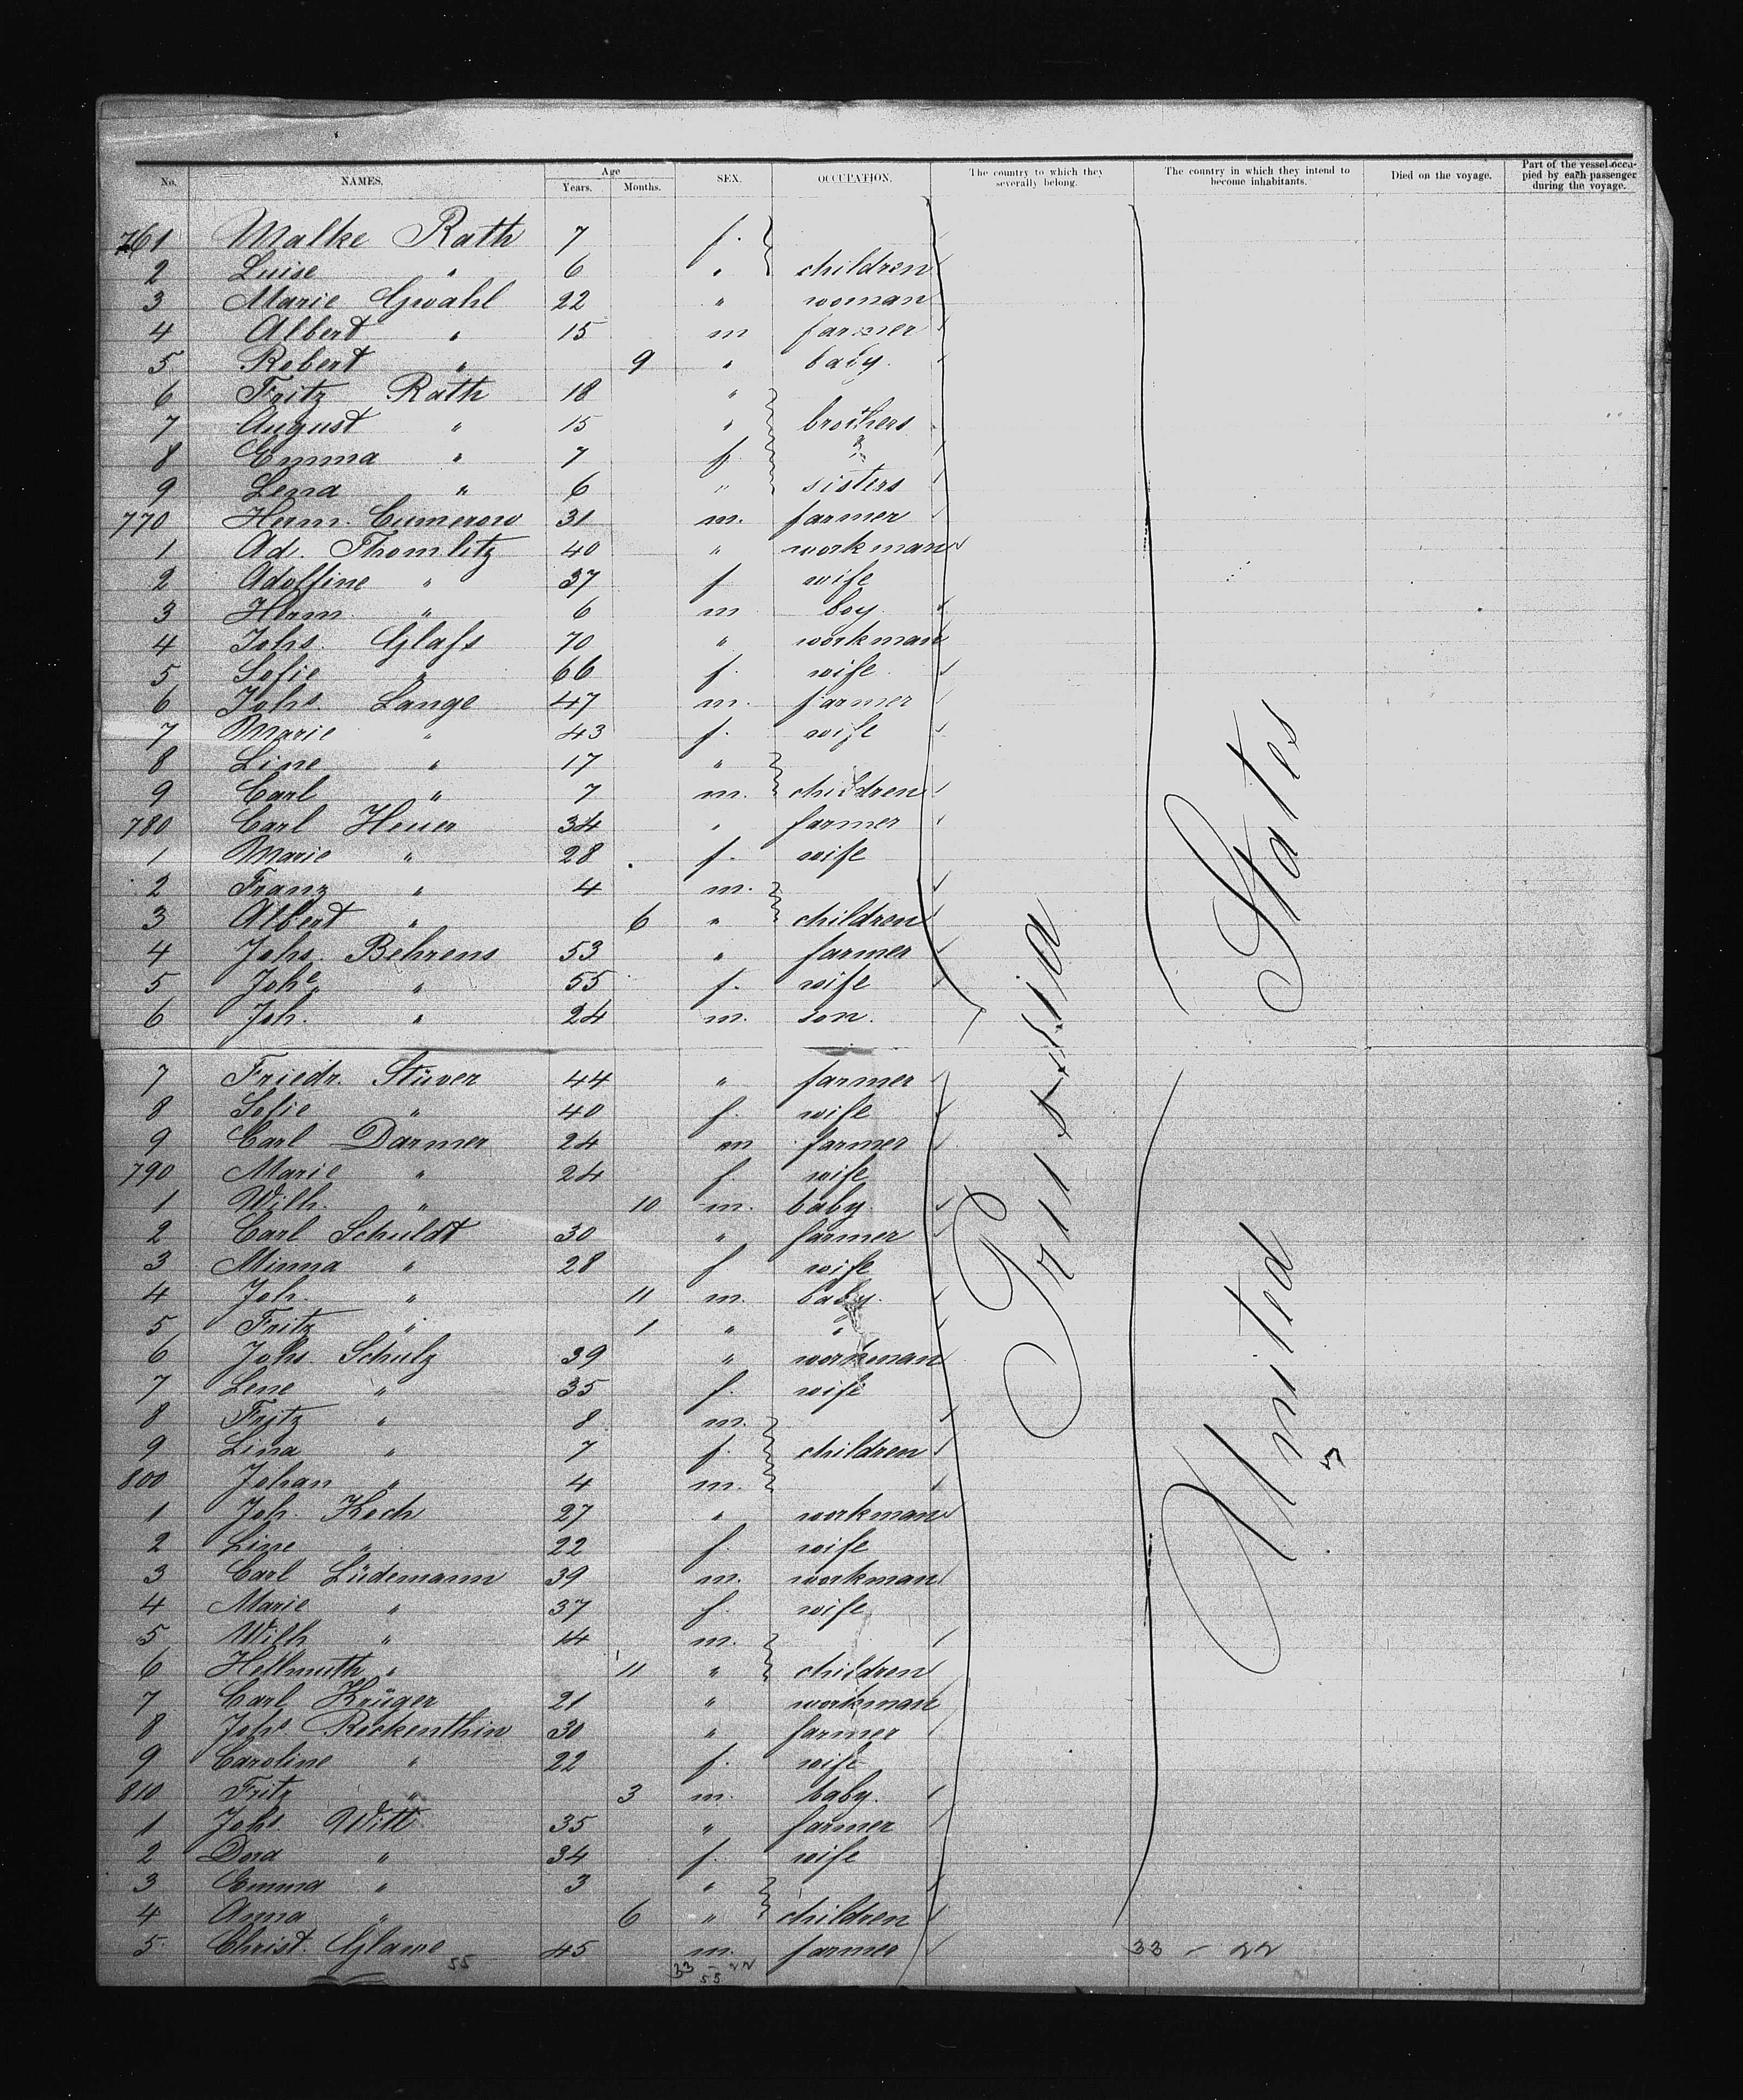 No. NAMES. Age Years. Months. SEX. OCCUPATION. The country to which they severally belong. The country in which they intend to become inhabitants. Died on the voyage. Part of the vessel occupied by each passenger during the voyage.
761 Malke Rath 7 f.
2 Luise " 6 " children
3 Marie Gwahl 22 " woman
4 Albert " 15 m farmer
5 Robert " 9 " baby.
6 Fritz Rath 18 "
7 August " 15 " brothers
8 Emma " 7 f &
9 Lena " 6 " sisters
770 Herm. Cumerow 31 m. farmer
1 Ad. Thomlitz 40 " workman
2 Adolfine " 37 f wife
3 Herm. " 6 m boy.
4 Johs. Glass 70 " workman
5 Sofie " 66 f. wife.
6 Johs Lange 47 m. farmer
7 Marie " 43 f. wife
8 Line " 17 "
9 Carl " 7 m. children
780 Carl Heuer 34 " farmer
1 Marie " 28 f. wife
2 Franz " 4 m.
3 Albert " 6 " children
4 Johs. Behrens 53 " farmer
5 Johe " 55 f. wife
6 Joh. " 24 m. son.
7 Friedr. Stüver 44 " farmer
8 Sofie " 40 f. wife
9 Carl Darmer 24 m farmer
790 Marie " 24 f. wife
1 Wilh. " 10 m. baby.
2 Carl Schuldt 30 " farmer
3 Minna " 28 f wife
4 Joh. " 11 m. baby.
5 Fritz " 1 " "
6 Johs. Schulz 39 " workman
7 Lene " 35 f. wife
8 Fritz " 8 m.
9 Lina " 7 f. children
800 Johan " 4 m.
1 Joh. Koch 27 " workman
2 Line " 22 f. wife
3 Carl Lüdemann 39 m. workman
4 Marie " 37 f. wife
5 Wilh " 14 m.
6 Hellmuth " 11 " children
7 Carl Krüger 21 " workman
8 Johs Reckenthin 30 " farmer
9 Caroline " 22 f. wife
810 Fritz " 3 m. baby.
1 Johs Witt 35 " farmer
2 Dora " 34 f. wife
3 Emma " 3 "
4 Anna " 6 " children
5 Christ. Glawe 45 m. farmer
55 33 - 22 33 - 22
55
Prussia
United States